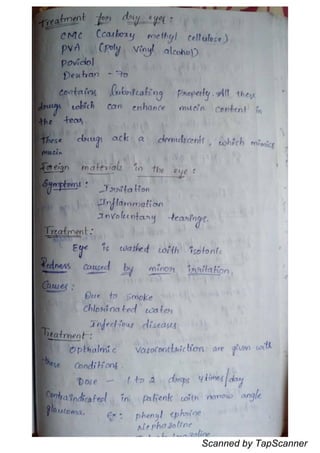 Treatment for dry eyes :
CMC (carboxy methyl cellulose)
PVA (poly vinyl alcohol)
Povidol
Dextran - 70
contains lubricating property. All these
drugs which can enhance mucin content in
the tear
These drugs act a demulscents, which mimics
mucin
Foreign materials in the eye :
Symptoms :
Irritation
Inflammation
Involuntary tearings.
Treatment :
Eye is washed with isotonic
Redness caused by minor irritation.
Causes :
Due to smoke
Chlorinated water
Infectious diseases
Treatment :
Opthalmic vasoconstriction are given with
these conditions.
Dose - 1 to 2 drops 4 times/day
Contraindicated in patients with narrow angle
glaucoma. Eg : phenyl ephrine
Nephazoline
Scanned by TapScanner